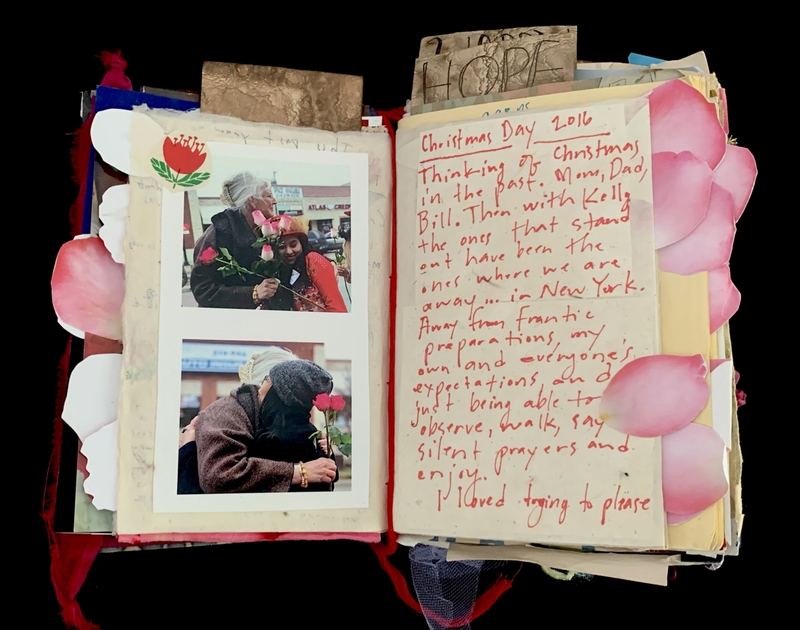 HOPE
Christmas Day 2016
Thinking of Christmas
in the past. Mom, Dad,
Bill. Then with Kelly
the ones that stand
out have been the
ones where we are
away... in New York.
Away from frantic
preparations, my
own and everyone's
expectations and
just being able to
observe, walk, say
silent prayers and
enjoy.
I loved trying to please